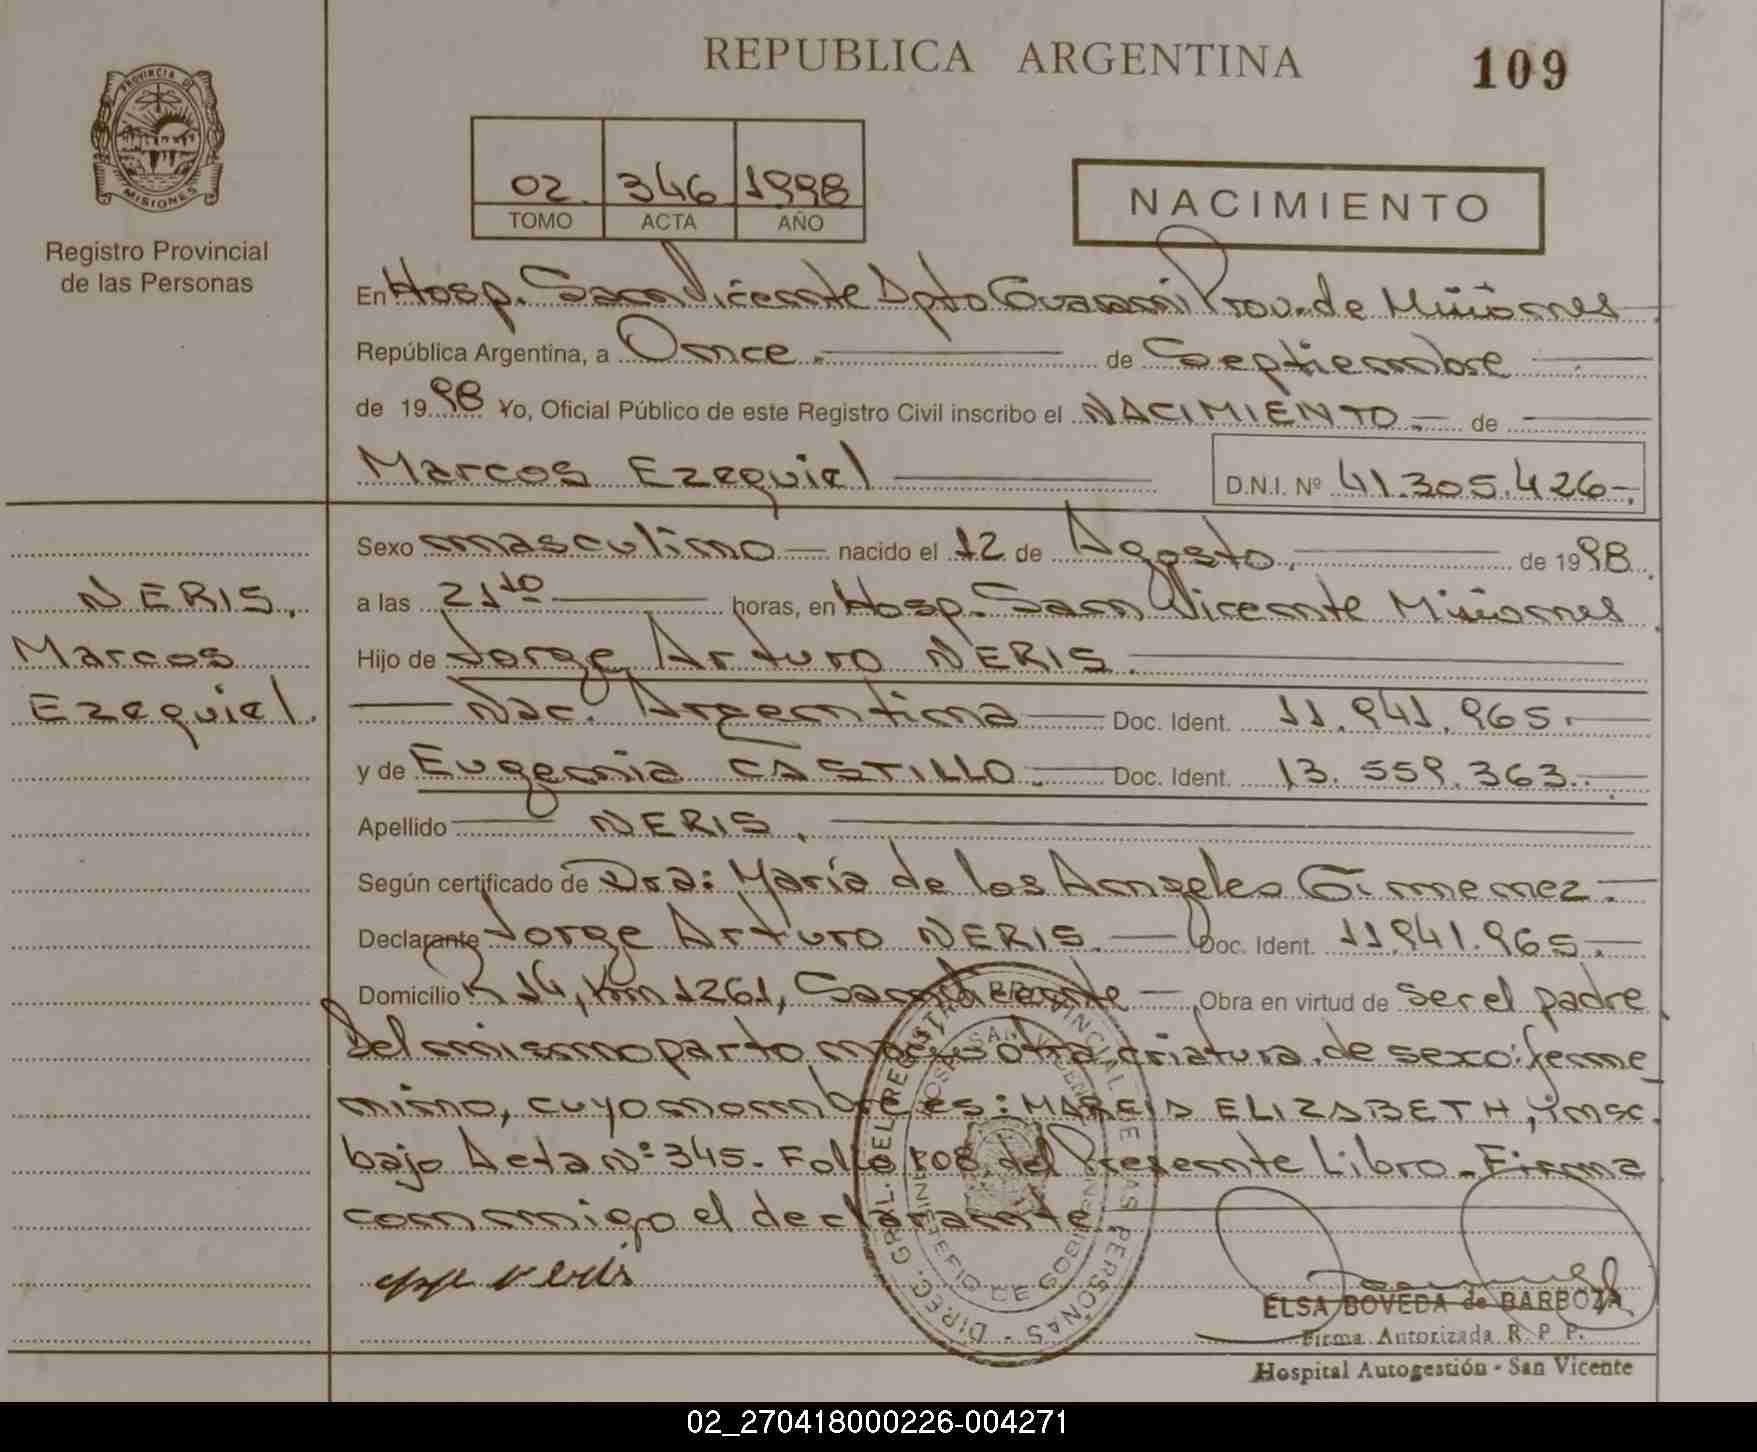 REPUBLICA ARGENTINA
109
PROVINCIA DE
MISIONES
Registro Provincial
de las Personas
02. 346 1998
TOMO ACTA AÑO
NACIMIENTO
En Hosp. San Vicente Dpto Guarani Prov. de Misiones
República Argentina, a Once. de Septiembre
de 1998 Yo, Oficial Público de este Registro Civil inscribo el NACIMIENTO. de
Marcos Ezequiel D.N.I. Nº 41.305.426-.
Sexo masculino nacido el 12 de Agosto. de 1998.
a las 21 10 horas, en Hosp. San Vicente Misiones
Hijo de Jorge Arturo NERIS.
Nac. Argentina Doc. Ident. 11.941.965.
y de Eugenia CASTILLO. Doc. Ident. 13.559.363.
Apellido NERIS.
Según certificado de Dra: María de los Angeles Gimenez.
Declarante Jorge Arturo NERIS. Doc. Ident. 11941.965.
Domicilio R 14, Km 1261, San Vicente Obra en virtud de ser el padre
Del mismo parto otra criatura de sexo: feme
nino, cuyo nombre es: ELIZABETH, insc.
bajo Acta Nº 345. Folio 108 del Presente Libro. Firma
conmigo el declarante
NERIS.
Marcos
Ezequiel.
DIREC. GRAL. DEL REGISTRO PROVINCIAL DE LAS PERSONAS
ELSA BOVEDA de BARBOZA
Firma Autorizada R. P. P.
Hospital Autogestión - San Vicente
02_270418000226-004271